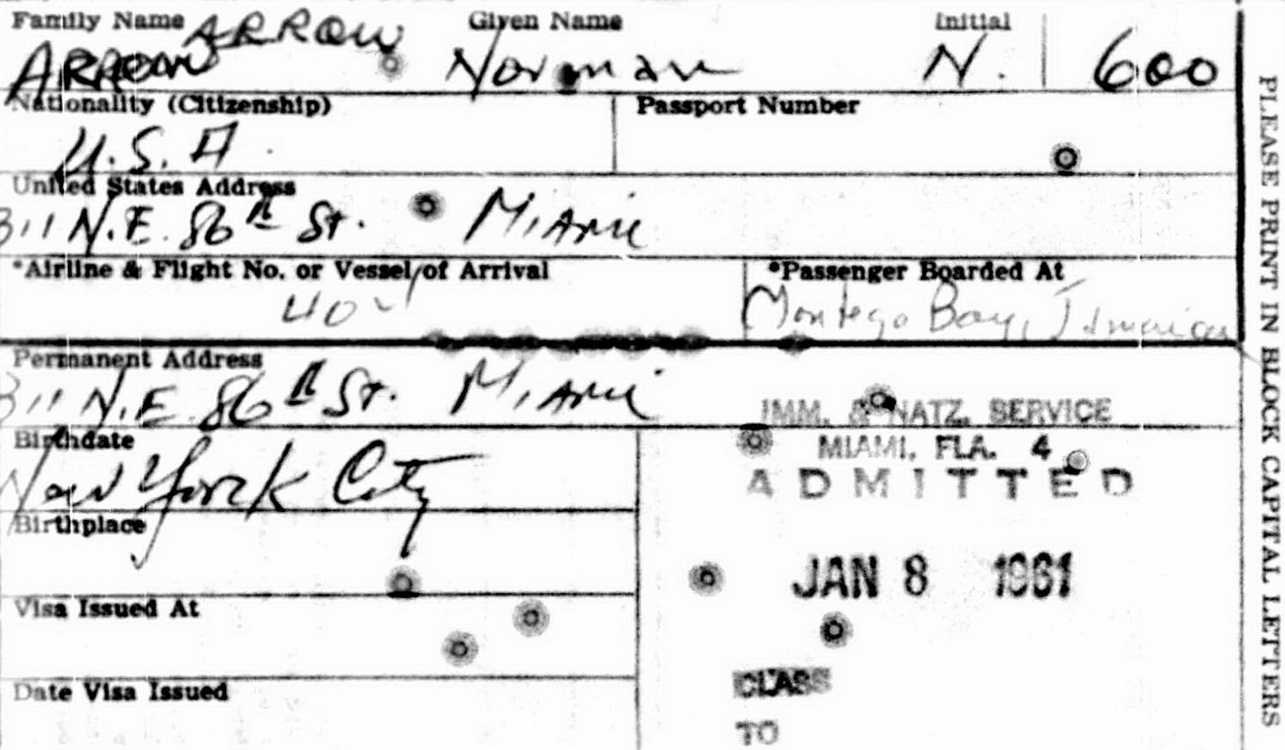 Family Name Given Name Initial
ARROW ARROW Norman N. 600
Nationality (Citizenship) Passport Number
U.S.A.
United States Address
311 N.E. 86th St. Miami
*Airline & Flight No. or Vessel of Arrival *Passenger Boarded At
Montego Bay, Jamaica
Permanent Address
311 N.E. 86th St. Miami
IMM. & NATZ. SERVICE
MIAMI, FLA. 4
ADMITTED
Birthdate
New York City
Birthplace
JAN 8 1961
Visa Issued At
CLASS
Date Visa Issued
TO
PLEASE PRINT IN BLOCK CAPITAL LETTERS